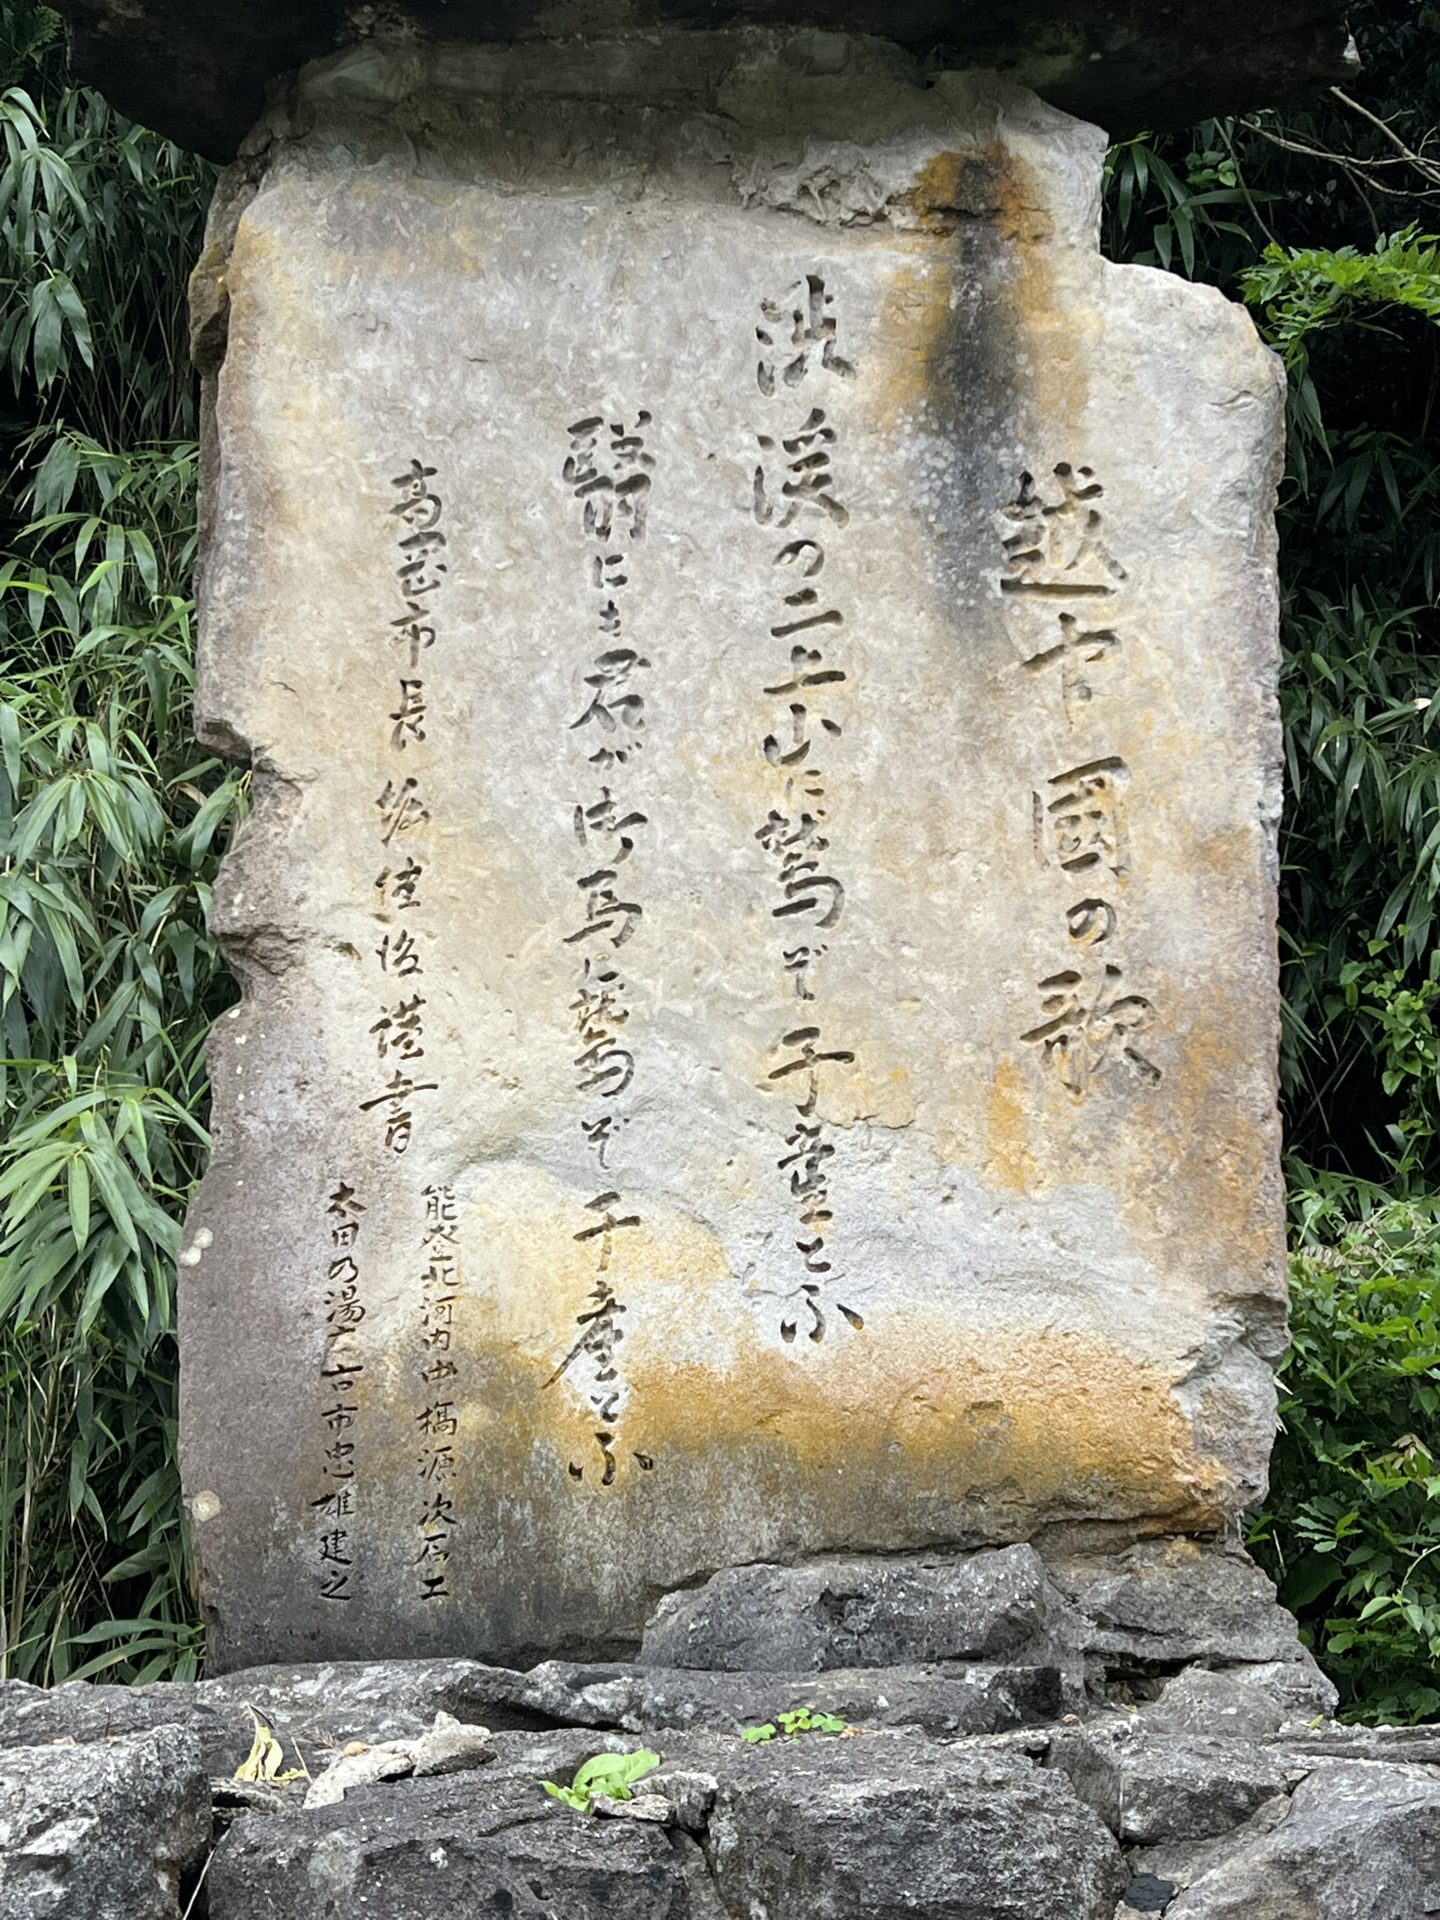 越中國の歌
渋渓の二上山に鷲ぞ子産とふ
翳にも君が御馬に鷲ぞ子産とふ
高岡市長 堀健治 謹書
能登北河内中橋源次石工
太田の湯 古市忠雄建之